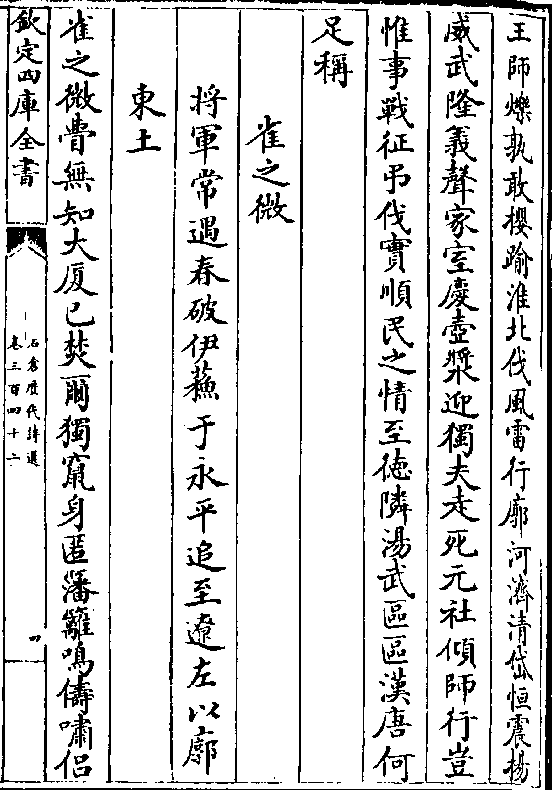 王師爍孰敢攖踰淮北伐風雷行廓河濟清岱恒震楊
威武隆義聲家室慶壺漿迎獨夫走死元社傾師行豈
惟事戰征弔伐實順民之情至德隣湯武區區漢唐何
足稱
雀之微
將軍常遇春破伊蘓于永平追至遼左以廓
東土
雀之微瞢無知大厦已焚爾獨竄身匿藩籬鳴儔嘯侣
欽定四庫全書
石倉歷代詩選
卷三百四十二
四